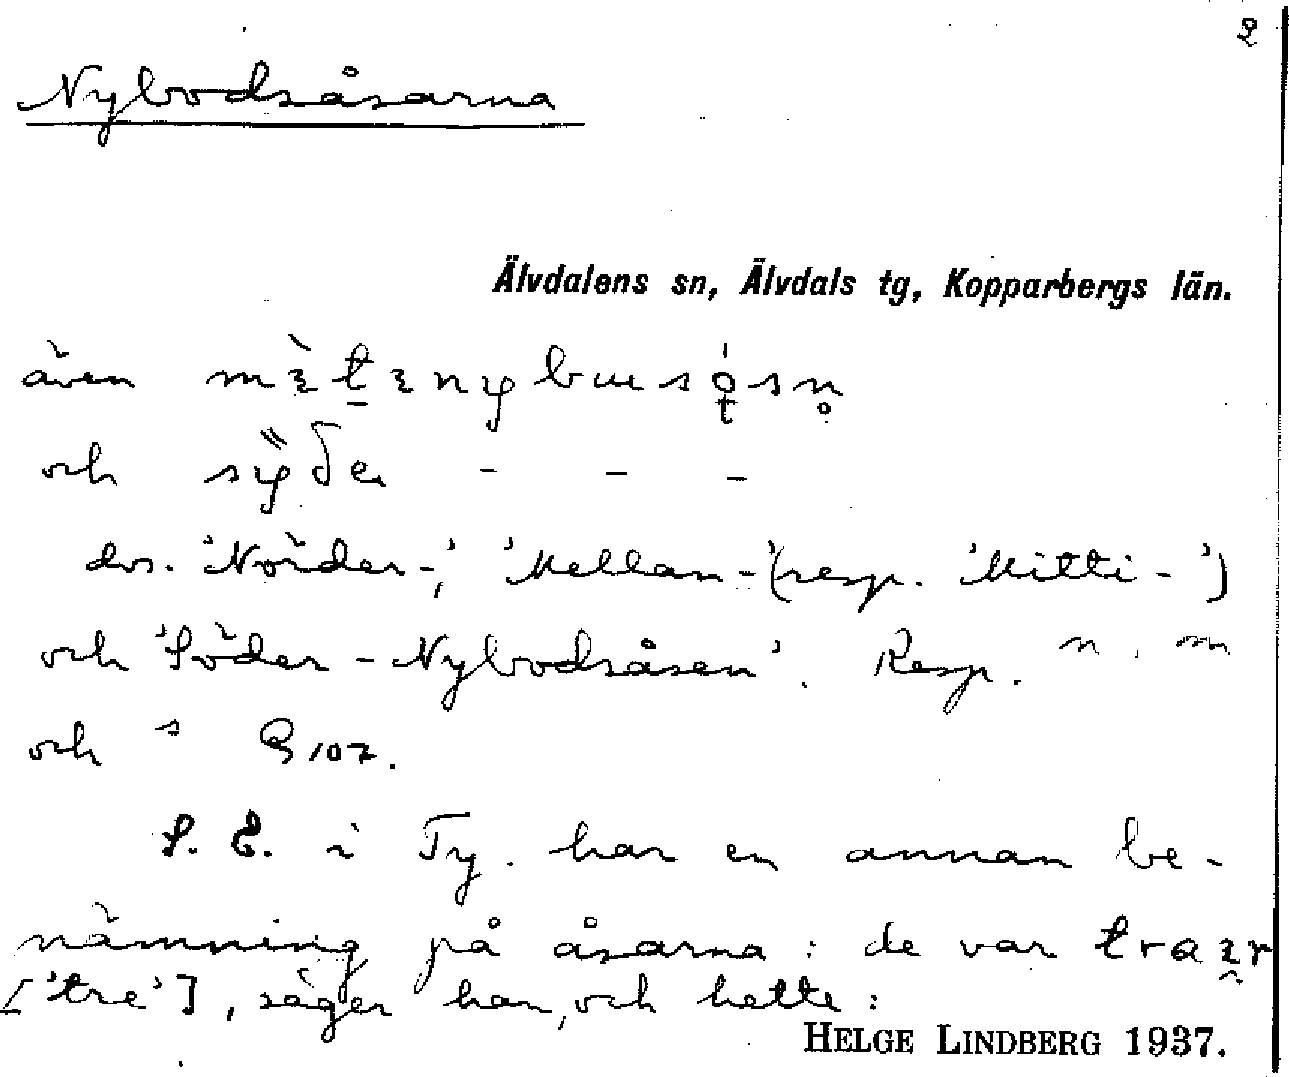 2
Nybodsåsarna
Älvdalens sn, Älvdals tg, Kopparbergs län.
även
och - - -
dvs. 'Norder-', 'Mellan-' (resp. 'Mitti-')
och 'Söder-Nybodsåsen'. Resp. n, m
och s G 107.
S. E. i Ty. har en annan be-
nämning på åsarna: de var
['tre'], säger han, och hette:
HELGE LINDBERG 1937.